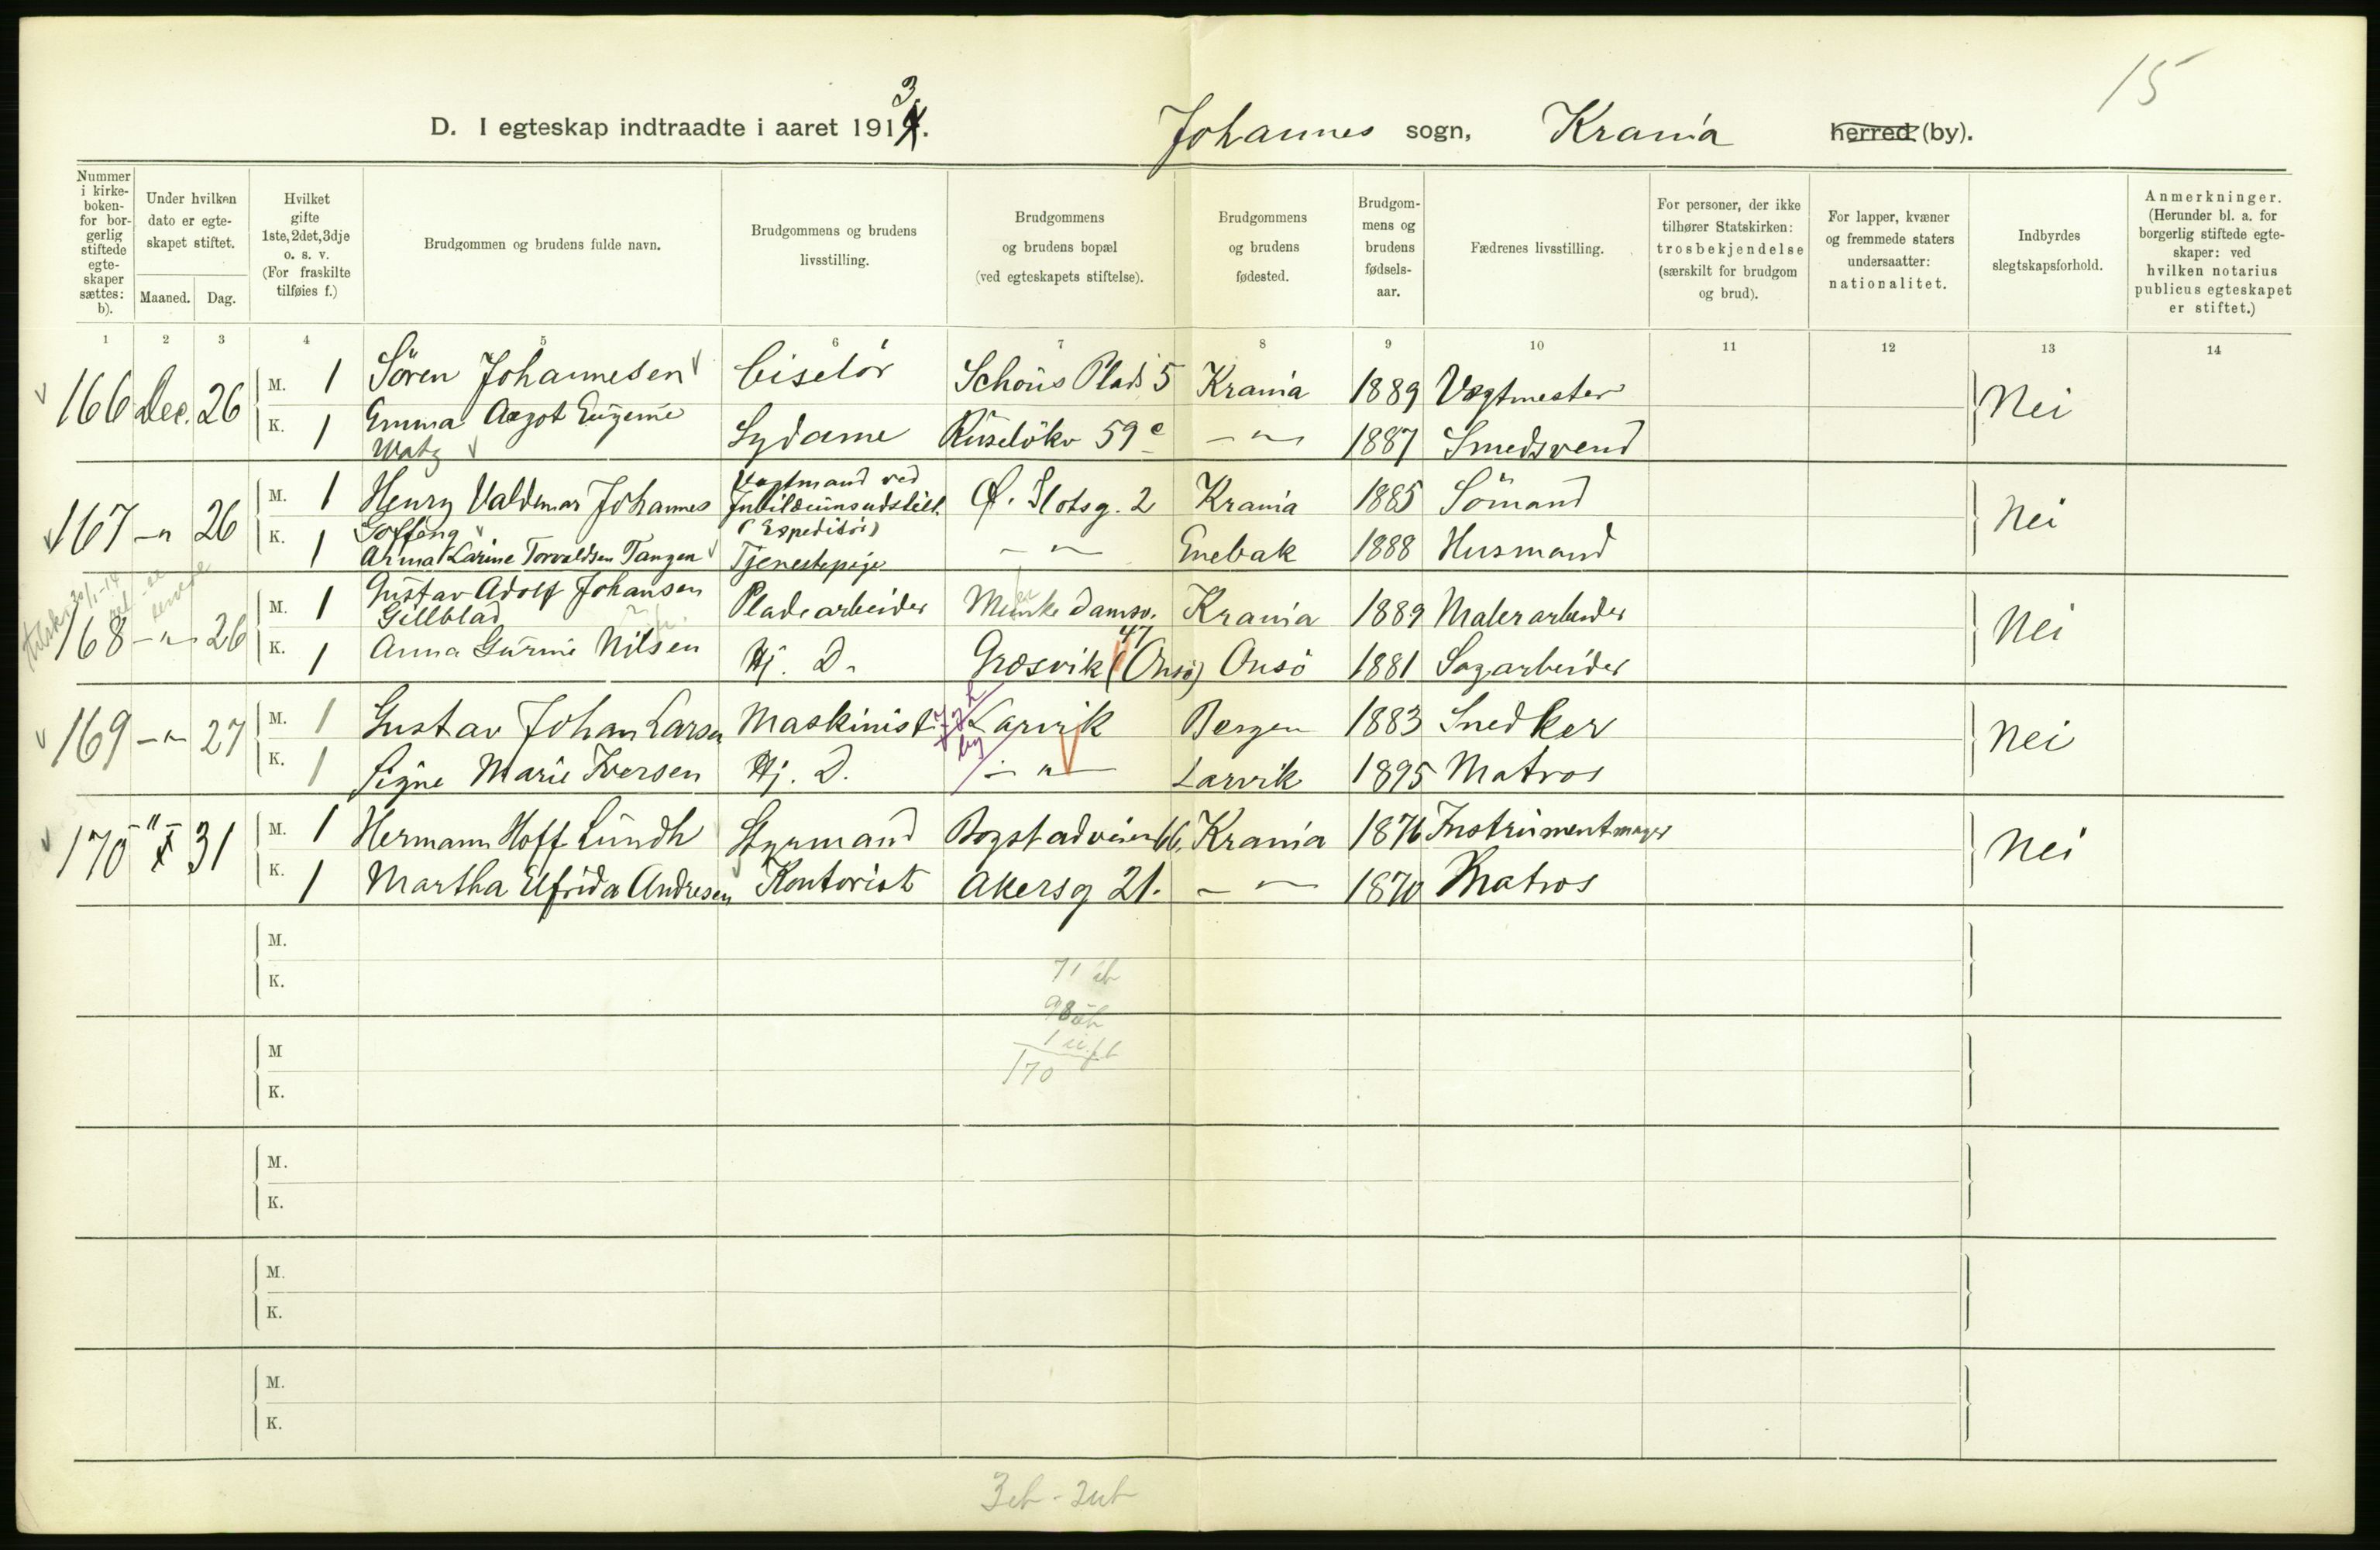 15
D. I egteskap indtraadte i aaret 1913.
Johannes sogn, Krania herred (by).
Nummer i kirke-boken- for bor-gerlig stiftede egte-skaper sættes: b).
Under hvilken dato er egte-skapet stiftet.
Maaned. Dag.
Hvilket gifte 1ste, 2det, 3dje o. s. v. (For fraskilte tilføies f.)
Brudgommen og brudens fulde navn.
Brudgommens og brudens livsstilling.
Brudgommens og brudens bopæl (ved egteskapets stiftelse).
Brudgommens og brudens fødested.
Brudgom-mens og brudens fødsels-aar.
Fædrenes livsstilling.
For personer, der ikke tilhører Statskirken: trosbekjendelse (særskilt for brudgom og brud).
For lapper, kvæner og fremmede staters undersaatter: nationalitet.
Indbyrdes slegtskapsforhold.
Anmerkninger. (Herunder bl. a. for borgerlig stiftede egte-skaper: ved hvilken notarius publicus egteskapet er stiftet.)
1 2 3 4 5 6 7 8 9 10 11 12 13 14
166 Dec. 26 M. 1 Søren Johannesen Ciselör Schous Plads 5 Krania 1889 Vægtmester Nei
K. 1 Emma Aagot Eugenie Watz Sydame Ruseløkv 59c — " — 1887 Smedsvend
167 — " 26 M. 1 Henry Valdemar Johannes Goffeng Vagtmand ved Jubilæumsudstill. (Expeditør) Ø. Slotsg. 2 Krania 1885 Sömand Nei
K. 1 Anna Karine Torvaldsen Tangen Tjenestepige — " — Enebak 1888 Husmand
168 — " — 26 M. 1 Gustav Adolf Johansen Gillblad Pladearbeider Munkedamsv. 47 Krania 1889 Malerarbeider Nei
K. 1 Anna Gurine Nilsen Hj. D. Græsvik (Onsö) Onsö 1881 Sagarbeider
169 — " — 27 M. 1 Gustav Johan Larsen Maskinist Larvik Bergen 1883 Snedker Nei
K. 1 Signe Marie Iversen Hj. D. — " — Larvik 1895 Matros
170 — " — 31 M. 1 Hermann Hoff Lundh Styrmand Bogstadveien 66. Krania 1876 Instrumentmager Nei
K. 1 Martha Elfrida Andresen Kontorist Akersg 21. — " — 1870 Matros
M.
K.
71
98
1
170
M
K.
M.
K.
M.
K.
M.
K.